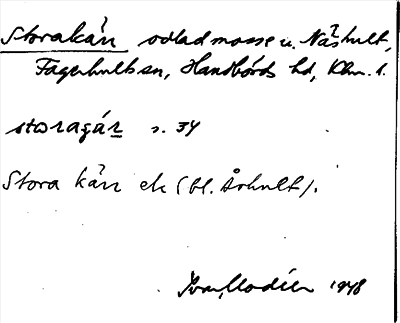 Storakärr odlad mosse u. Näshult,
Fagerhults sn, Handbörds hd, Klm. l.
storagár s. 34
Stora kärr ek (bl. Århult).
Ivar Modéer 1948